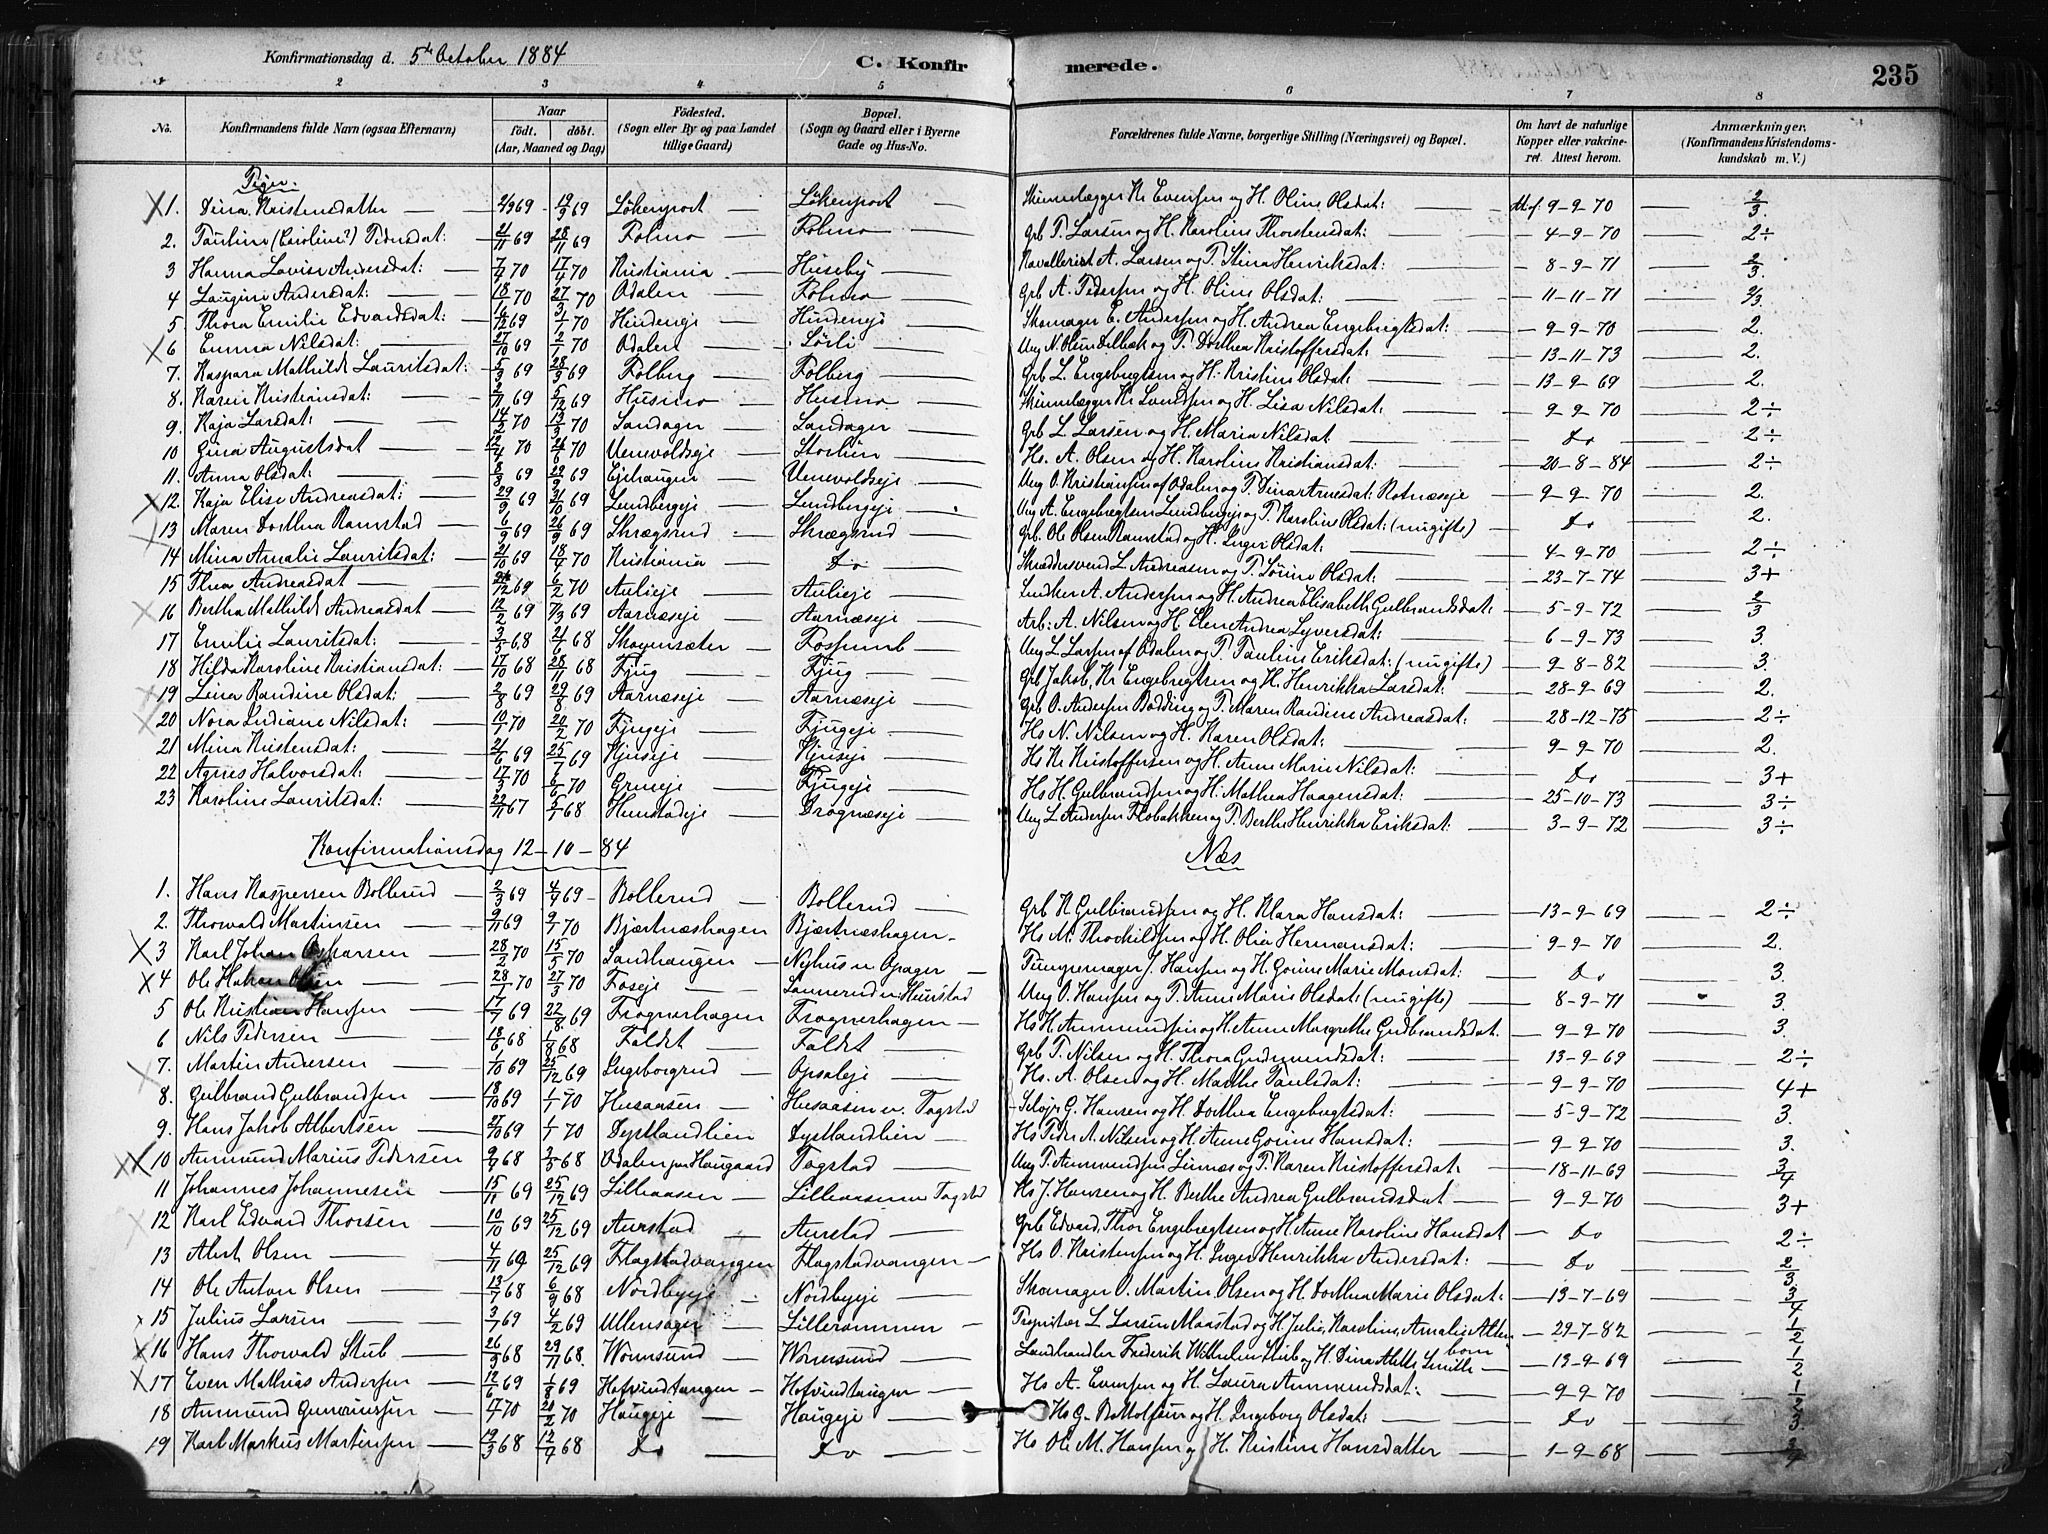 Konfirmationsdag d. 5te October 1884
C. Konfirmerede.
235
1 2 3 4 5 6 7 8
No. Konfirmandens fulde Navn (ogsaa Efternavn) Naar født. døbt. (Aar, Maaned og Dag) Fødested. (Sogn eller By og paa Landet tillige Gaard) Bopæl. (Sogn og Gaard eller i Byerne Gade og Hus-No. Forældrenes fulde Navne, borgerlige Stilling (Næringsvei) og Bopæl. Om havt de naturlige Kopper eller vakcineret. Attest herom. Anmærkninger. (Konfirmandens Kristendomskundskab m. V.)
Piger:
1. Dina Kristensdatter 2/9 69 19/9 69 Løkenport Løkenport Kr Evensen og H. Oline Olsdat: 9-9-70 2/3.
2. Pauline (Caroline?) Pedersdat: 21/11 69 28/11 69 Folmo Folmo Grb P. Larsen og H. Karoline Thorstensdat: 4-9-70 2÷
3 Hanna Lovise Andersdat: 7/4 70 17/4 70 Kristiania Huseby Kavallerist A. Larsen og P. Stina Henriksdat: 8-9-71 2/3.
4 Laugine Andersdat: 18/11 70 27/11 70 Odalen Folmo Grb A. Pedersen og H. Oline Olsdat: 11-11-71 2/3.
5. Thora Emilie Edvardsdat: 16/12 69 3/1 70 Hindeneje Hindeneje Skomager E. Andersen og H. Andrea Engebregtsdat: 9-9-70 2.
6 Emma Nilsdat: 27/10 69 2/1 70 Odalen Sørli Ung N. Olsen og P. Dorthea Kristoffersdat: 13-11-73 2.
7. Kaspara Mathilde Lauritsdat: 5/3 69 28/3 69 Folberg Folberg Grb L. Engebregtsen og H. Kristine Olsdat: 13-9-69 2.
8. Karen Kristiansdat: 2/11 69 5/12 69 Husmo Husmo Kr Svendsen og H. Lisa Nilsdat: 9-9-70 2÷
9. Kaja Larsdat: 14/2 70 13/3 70 Sandager Sandager Grb L. Larsen og H. Maria Nilsdat Do 2÷
10 Gina Augustsdat 12/4 70 26/6 70 Uenvoldseje Storlien Hs. A. Olsen og H. Karoline Kristiansdat: 20-8-84 2÷
11. Anna Olsdat: 8/3 69 29/9 69 Ejehaugen Uenvoldseje Ung O. Kristiansen af Odalen og P. Dina Arnesdat: Rotnæseje 9-9-70 2.
12. Kaja Elise Andreasdat: 29/9 69 31/10 69 Lundbergeje Lundbergeje Ung A. Engebregtsen Lundbergeje og P. Karoline Olsdat: (nu gifte) Do 2.
13 Maren Dorthea Ramstad 6/9 69 26/9 69 Skrægsrud Skrægsrud Grb. Ole Olsen Ramstad og H. Inger Olsdat: 4-9-70 2÷
14 Mina Amalie Lauritsdat: 21/10 69 18/4 70 Kristiania Do Skræddersvend L. Andreasen og P. Sørine Olsdat: 23-7-74 3+
15 Thea Andreasdat 26/12 69 6/2 70 Aulieje Aulieje A. Andersen og H. Andrea Elisabeth Gulbrandsdat: 5-9-72 2/3
16 Bertha Mathilde Andreasdat 12/2 69 7/3 69 Aarnæseje Aarnæseje Arb: A. Nilsen og H. Elen Andrea Syversdat: 6-9-73 3.
17 Emilie Lauritsdat: 3/5 68 21/6 68 Skogensæter Fossumb Ung L. Larsen af Odalen og P. Pauline Eriksdat: (nu gifte) 9-8-82 3.
18 Hilda Karoline Kristiansdat: 17/10 68 28/11 68 Fjug Fjug Grb Jakob Kr Engebregtsen og H. Henrikka Larsdat: 28-9-69 2.
19 Lina Randine Olsdat: 2/8 69 29/8 69 Aarnæseje Aarnæseje Grb O. Andersen Bødding og P. Maren Randine Andreasdat: 28-12-75 2÷
20 Nora Indiane Nilsdat: 10/1 70 20/2 70 Fjugeje Fjugeje Hs N. Nilsen og H. Karen Olsdat: 9-9-70 2.
21 Mina Kristensdat: 21/6 69 25/7 69 Hjuseje Hjuseje Hs Kr Kristoffersen og H. Anne Marie Nilsdat: Do 3+
22 Agnes Halvorsdat: 17/3 70 1/6 70 Grueeje Fjugeje Hs H. Gulbrandsen og H. Mathea Haagensdat: 25-10-73 3÷
23 Karoline Lauritsdat: 22/11 67 5/1 68 Hunstadeje Drognæseje Ung L. Andersen Flobakken og P. Berthe Henrikka Eriksdat: 3-9-72 3÷
Konfirmationsdag 12-10-84 Næs
1. Hans Kaspersen Bollerud 2/3 69 4/4 69 Bollerud Bollerud Grb K. Gulbrandsen og H. Klara Hansdat: 13-9-69 2÷
2. Thorvald Martinsen 9/11 69 9/1 70 Bjærtnæshagen Bjærtnæshagen Hs M. Thorkildsen og H. Olia Hermansdat: 9-9-70 2.
3 Karl Johan Oskarsen 28/2 70 15/5 70 Sandhaugen Nyhus u Opager J. Hansen og H. Gorine Marie Monsdat: Do 3.
4 Ole Hakon Olsen 28/1 70 27/3 70 Foseje Sannerud u. Hunstad Ung O. Hansen og P. Anne Marie Olsdat: (nu gifte) 8-9-71 3.
5 Ole Kristian Hansen 17/7 69 22/8 69 Frognerhagen Frognerhagen Hs H. Ammundsen og H. Anne Margrethe Gudbrandsdat. 9-9-70 3.
6 Nils Pedersen 18/6 68 1/8 68 Faldet Faldet Grb P. Nilsen og H. Thora Gudmundsdat: 13-9-69 2÷
7. Martin Andersen 1/10 69 25/12 69 Ingeborgrud Opsaleje Hs. A. Olsen og H. Marthe Paulsdat: 9-9-70 4+
8. Gulbrand Gulbrandsen 18/10 69 1/1 70 Husaasen Husaasen u. Togstad G. Hansen og H. Dorthea Engebregtsdat: 5-9-72 3.
9. Hans Jakob Albertsen 27/10 69 1/1 70 Dystlandlien Dystlandlien Hs Peder A. Nilsen og H. Anne Gorine Hansdat: 9-9-70 3.
10 Ammund Marius Pedersen 9/4 68 2/5 68 Odalen paa Haugaard Togstad Ung P. Ammundsen Linnæs og P. Karen Kristoffersdat: 18-11-69 3/4
11 Johannes Johannesen 15/11 69 25/12 69 Lilleaasen Lilleaasen u Togstad Hs J. Hansen og H. Berthe Andrea Gulbrandsdat 9-9-70 3+
12 Karl Edvard Thorsen 10/10 69 25/12 69 Aurstad Aurstad Grb Edvard Thor Engebregtsen og H. Anne Karoline Hansdat Do 2÷
13 Albert Olsen 4/11 69 25/12 69 Flagstadvangen Flagstadvangen Hs O. Kristensen og H. Inger Henrikka Andersdat: Do 2/3
14 Ole Anton Olsen 13/7 68 6/9 68 Nordbyeje Nordbyeje Skomager O. Martin Olsen og H. Dorthea Marie Olsdat: 13-7-69 3/4
15 Julius Larsen 3/1 69 4/2 69 Ullensager Lillerommen Proprietær L. Larsen Maastad og H. Julie Karoline Amalie Altenborn 29-7-82 1/2
16 Hans Thorvald Stub 26/9 68 29/11 68. Wormsund Wormsund Landhandler Frederik Wilhelm Stub og H. Dina Smith 13-9-69 1/2
17 Even Mathias Andersen 12/6 69 1/8 69 Hofvindtangen Hofvindtangen Hs A. Evensen og H. Laura Ammundsdat: 9-9-70 1/2
18 Ammund Guneriussen 4/1 70 20/2 70 Haugeje Haugeje Hs G. Bottolfsen og H. Ingeborg Olsdat: Do 3
19 Karl Markus Martinsen 19/3 68 12/4 68 Do Do Hs Ole M. Hansen og H. Kristine Hansdatter 1-9-68 3/4